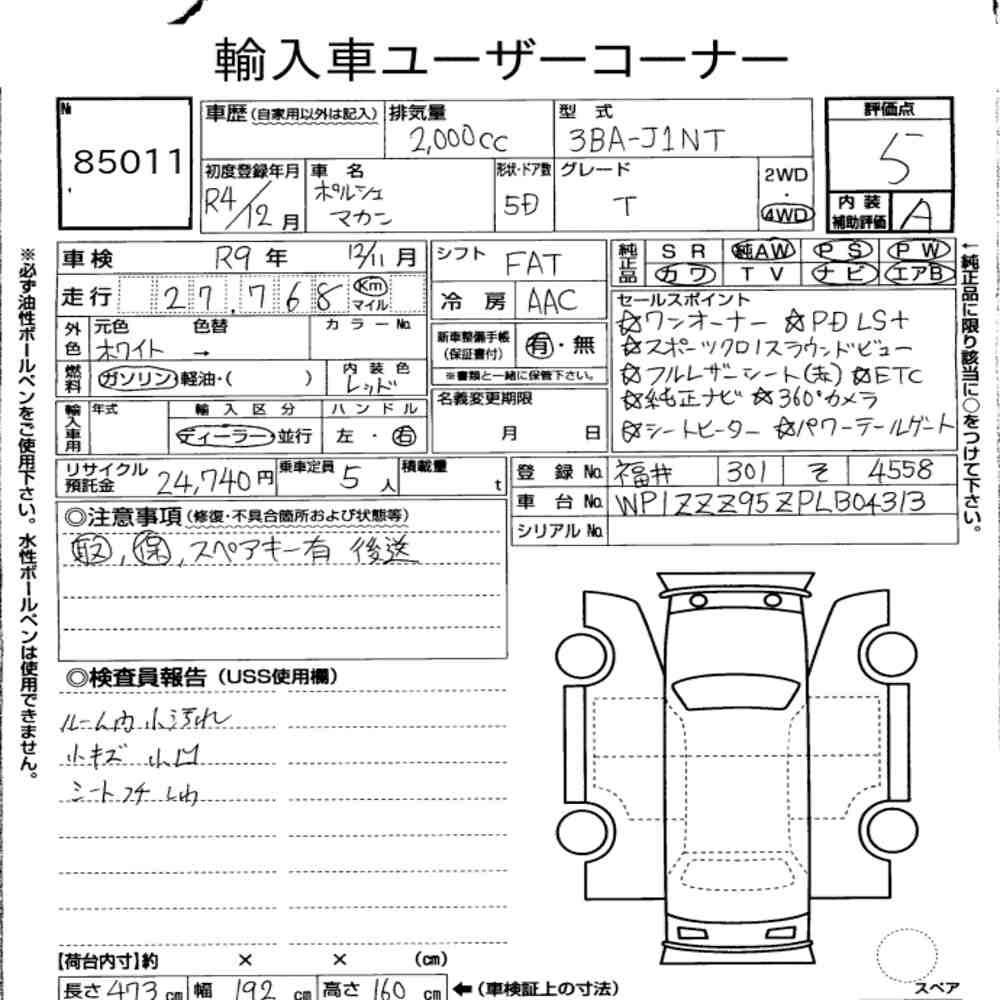 輸入車ユーザーコーナー
№ 85011
車歴(自家用以外は記入)
排気量 2,000cc
型式 3BA-J1NT
評価点 5
初度登録年月 R4/12月
車名 ポルシェ マカン
形状・ドア数 5D
グレード T
2WD・4WD
内装補助評価 A
車検 R9年 12/11月
シフト FAT
純正品 SR 純AW PS PW
カワ TV ナビ エアB
走行 27,768 Km マイル
冷房 AAC
セールスポイント
☆ワンオーナー ☆PDLS+
☆スポーツクロノ ☆サラウンドビュー
☆フルレザーシート(赤) ☆ETC
☆純正ナビ ☆360°カメラ
☆シートヒーター ☆パワーテールゲート
外色 元色 色替 カラーNo.
ホワイト →
新車整備手帳(保証書付) 有・無
※書類と一緒に保管下さい。
燃料 ガソリン・軽油・( )
内装色 レッド
名義変更期限 月 日
輸入車用 年式 輸入区分 ハンドル
ディーラー・並行 左・右
リサイクル預託金 24,740円
乗車定員 5人
積載量 t
登録No. 福井 301 そ 4558
車台No. WP1ZZZ95ZPLB04313
シリアルNo.
◎注意事項(修復・不具合箇所および状態等)
取,保,スペアキー有 後送
◎検査員報告(USS使用欄)
ルーム内小汚れ
小キズ 小凹
シートフチしわ
【荷台内寸】約 × × (cm)
長さ473cm 幅192cm 高さ160cm ←(車検証上の寸法)
スペア
※必ず油性ボールペンをご使用下さい。水性ボールペンは使用できません。
←純正品に限り該当に○をつけて下さい。